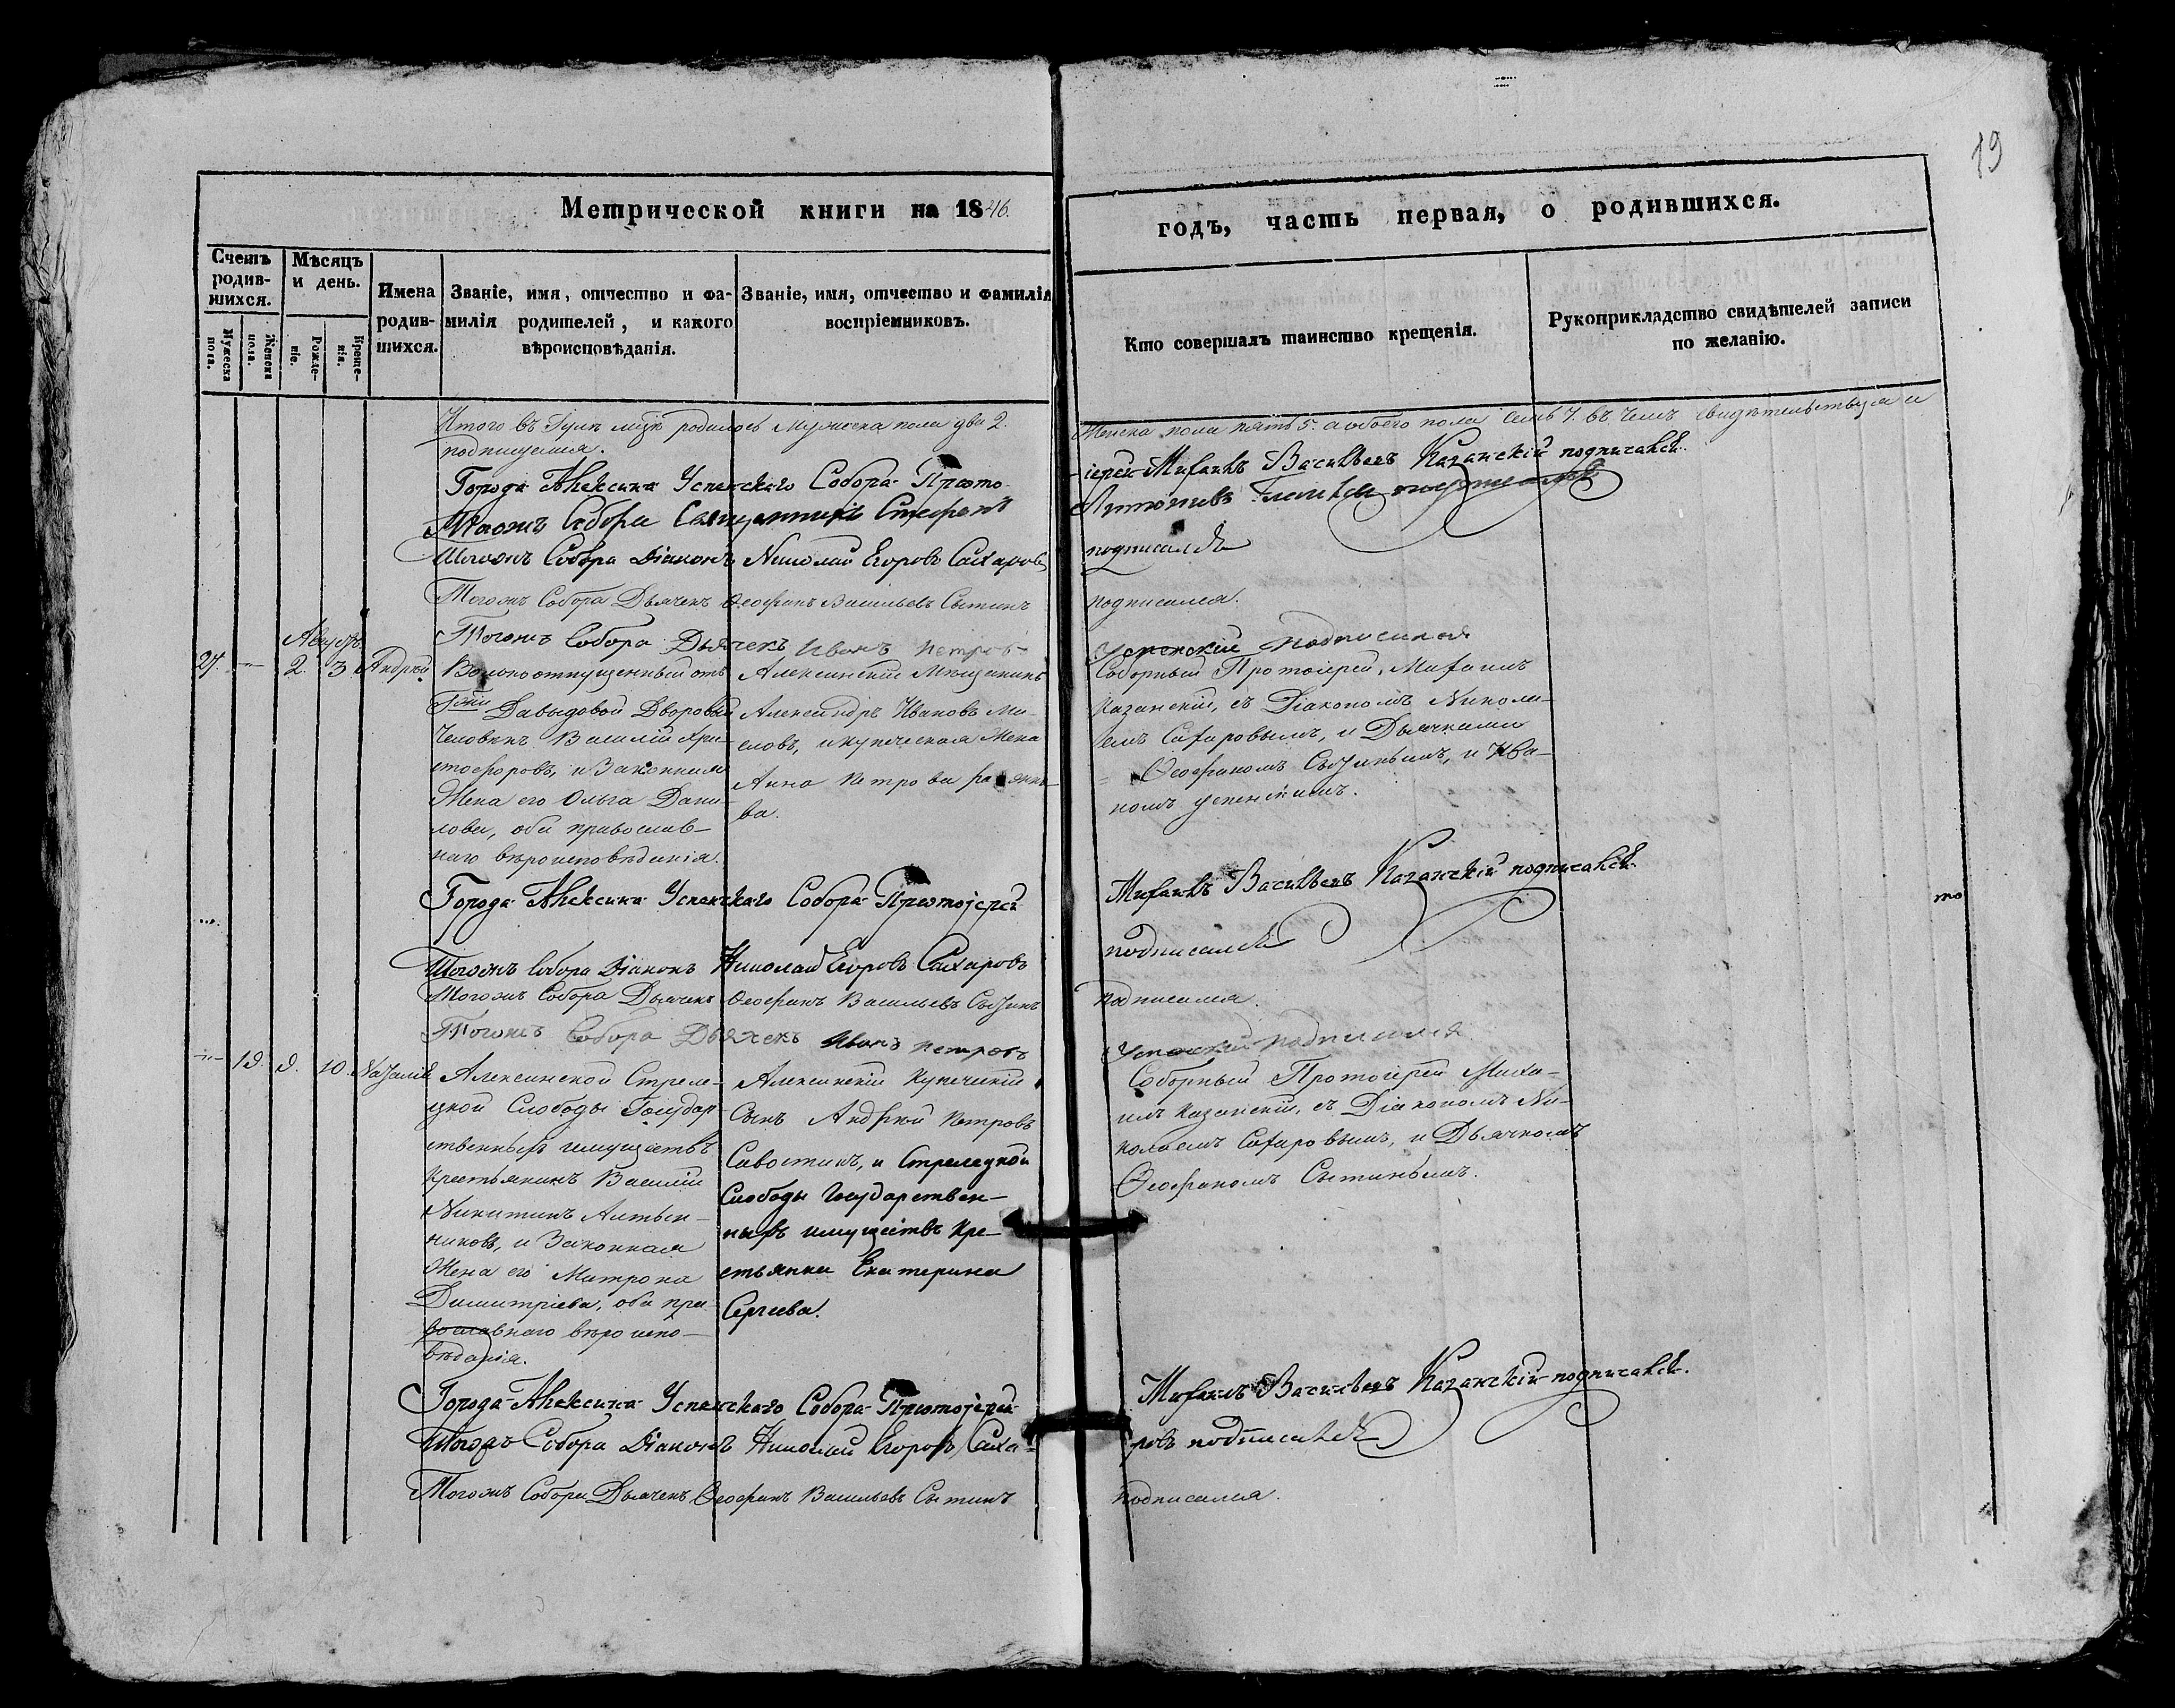 19
Метрической книги на 1846.
годъ, часть первая, о родившихся.
Счетъ родив-шихся.
Мужеска пола.
Женска пола.
Мѣсяцъ и день.
Рожде-нія.
Креще-нія.
Имена родив-шихся.
Званіе, имя, отчество и фа-
милія родителей, и какого
вѣроисповѣданія.
Званіе, имя, отчество и фамилія
воспріемниковъ.
Кто совершалъ таинство крещенія.
Рукоприкладство свидѣтелей записи
по желанію.
Итого въ Іулѣ мцѣ родилось Мужеска пола два 2. Женска пола пять 5. а обоего пола семь 7. въ чемъ свидѣтельствуемъ и
подписуемся.
Города Алексина Успенскаго Собора Прото-
іерей Михаилъ Васильевъ Казанскій подписался.
Тогожъ Собора Священникъ Стефанъ
Тогожъ Собора Діаконъ Николай Егоровъ Сахаровъ
подписался
Тогожъ Собора Дьячекъ Ѳеофанъ Васильевъ Сытинъ
подписался.
Тогожъ Собора Дьячекъ Иванъ Петровъ
Успенскій подписался
Августъ.
27. 2. 3. Андрѣй.
Вольноотпущенный отъ
Гжи Давыдовой Дворовый
Человѣкъ Василій Хри-
стофоровъ, и Законная
Жена его Ольга Дани-
лова, оба православ-
наго вѣроисповѣданія.
Алексинскій Мѣщанинъ
Александръ Ивановъ Ма-
словъ, и купеческая Жена
Анна Петрова
ва.
Соборный Протоіерей, Михаилъ
Казанскій, съ Діакономъ Никола-
емъ Сахаровымъ, и Дьячками
Ѳеофаномъ Сытинымъ, и Ива-
номъ Успенскимъ.
Города Алексина Успенскаго Собора Протоіерей
Михаилъ Васильевъ Казанскій подписался.
Тогожъ Собора Діаконъ Николай Егоровъ Сахаровъ
подписался
Тогожъ Собора Дьячекъ Ѳеофанъ Васильевъ Сытинъ
подписался.
Тогожъ Собора Дьячекъ Иванъ Петровъ
Успенскій подписался
19. 9. 10. Наталія
Алексинской Стреле-
цкой Слободы Государ-
ственныхъ имуществъ
Крестьянинъ Василій
Никитинъ Алтын-
никовъ, и Законная
Жена его Матрона
Димитріева, оба пра-
вославнаго вѣроиспо-
вѣданія.
Алексинскій Купеческій
Сынъ Андрѣй Петровъ
Савостинъ, и Стрелецкой
Слободы Государствен-
ныхъ имуществъ Кре-
стьянка Екатерина
Сергѣева.
Соборный Протоіерей Миха-
илъ Казанскій, съ Діакономъ Ни-
колаемъ Сахаровымъ, и Дьячкомъ
Ѳеофаномъ Сытинымъ.
Города Алексина Успенскаго Собора Протоіерей
Михаилъ Васильевъ Казанскій подписался.
Тогожъ Собора Діаконъ Николай Егоровъ Саха-
ровъ подписался
Тогожъ Собора Дьячекъ Ѳеофанъ Васильевъ Сытинъ
подписался.